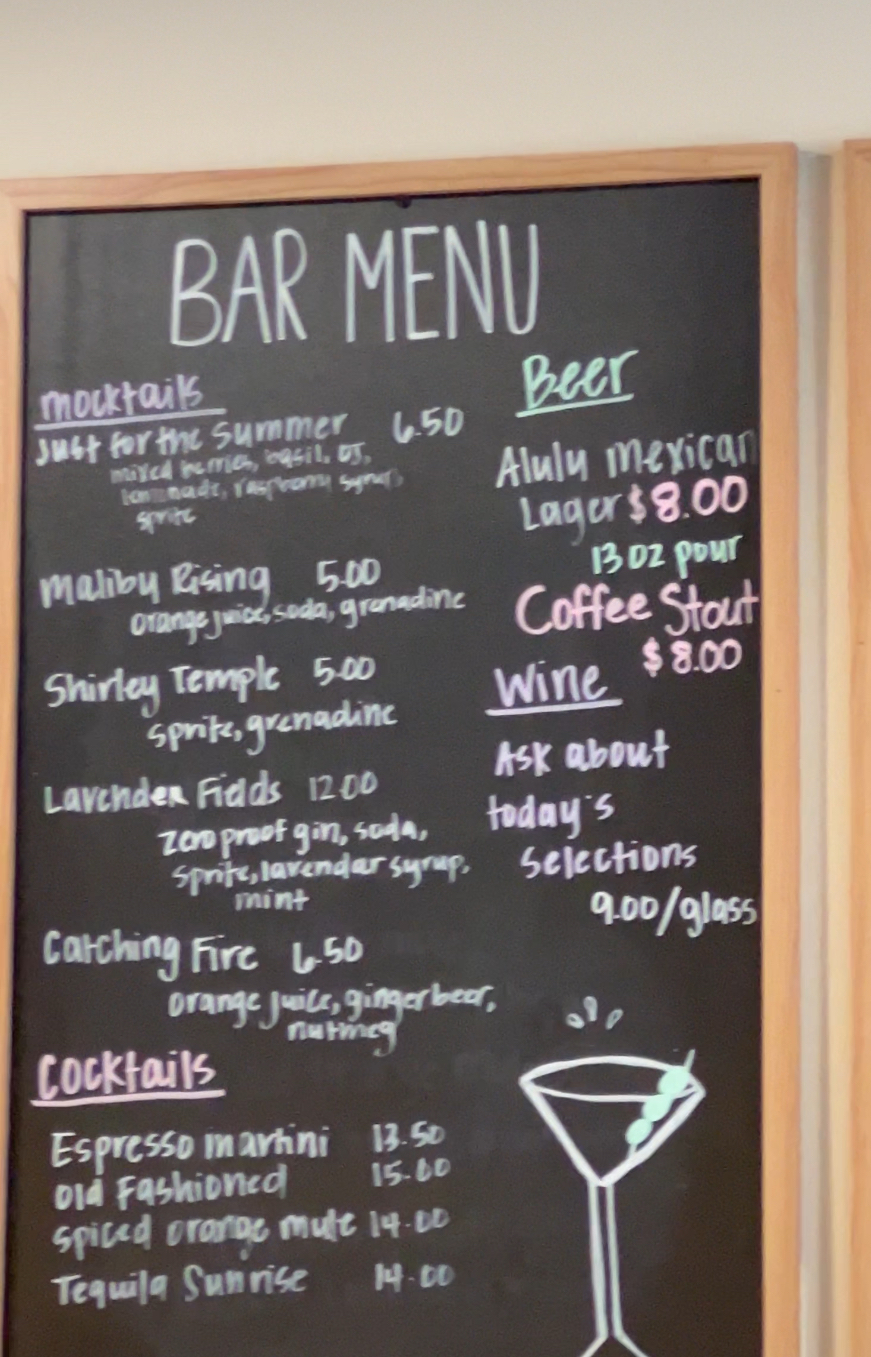 BAR MENU
mocktails
Just for the Summer 6.50
mixed berries, basil, OJ,
lemonade, raspberry syrup,
sprite
Maliby Rising 5.00
orange juice, soda, grenadine
Shirley Temple 5.00
sprite, grenadine
Lavender Fields 12.00
zero proof gin, soda,
sprite, lavendar syrup,
mint
Catching Fire 6.50
orange juice, ginger beer,
nutmeg
Cocktails
Espresso martini 13.50
Old Fashioned 15.00
spiced orange mule 14.00
Tequila Sunrise 14.00
Beer
Alulu mexican
Lager $8.00
13 oz pour
Coffee Stout
$8.00
Wine
Ask about
today's
selections
9.00/glass